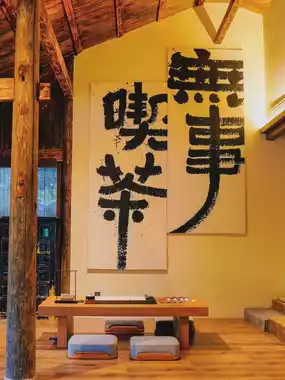 無事
喫茶